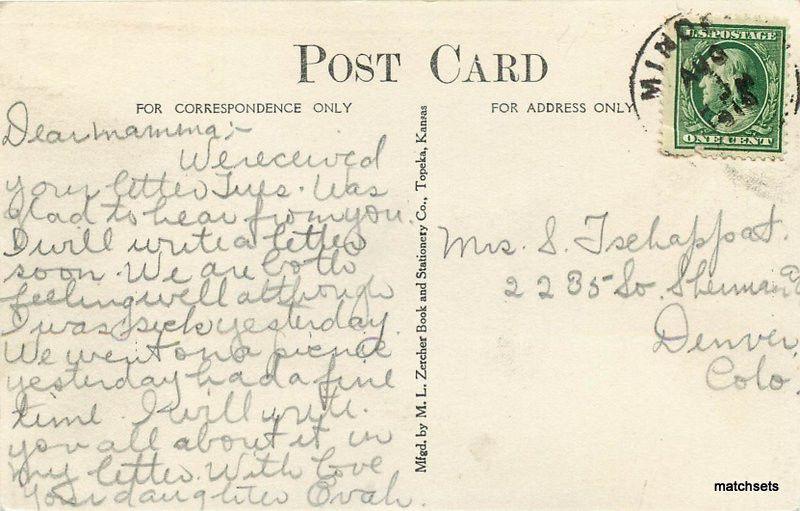 POST CARD
FOR CORRESPONDENCE ONLY
FOR ADDRESS ONLY
Dear mamma:-
We received
your letter Tues. Was
glad to hear from you.
I will write a letter
soon. We are both
feeling well although
I was sick yesterday.
We went on a picnic
yesterday had a fine
time. I will write
you all about it in
my letter. With love
Your daughter Evah.
Mfgd. by M. L. Zercher Book and Stationery Co., Topeka, Kansas
MINO
AUG
U.S. POSTAGE
ONE CENT
Mrs. S. Tschappat.
2235 So. Sherman
Denver,
Colo.
matchsets